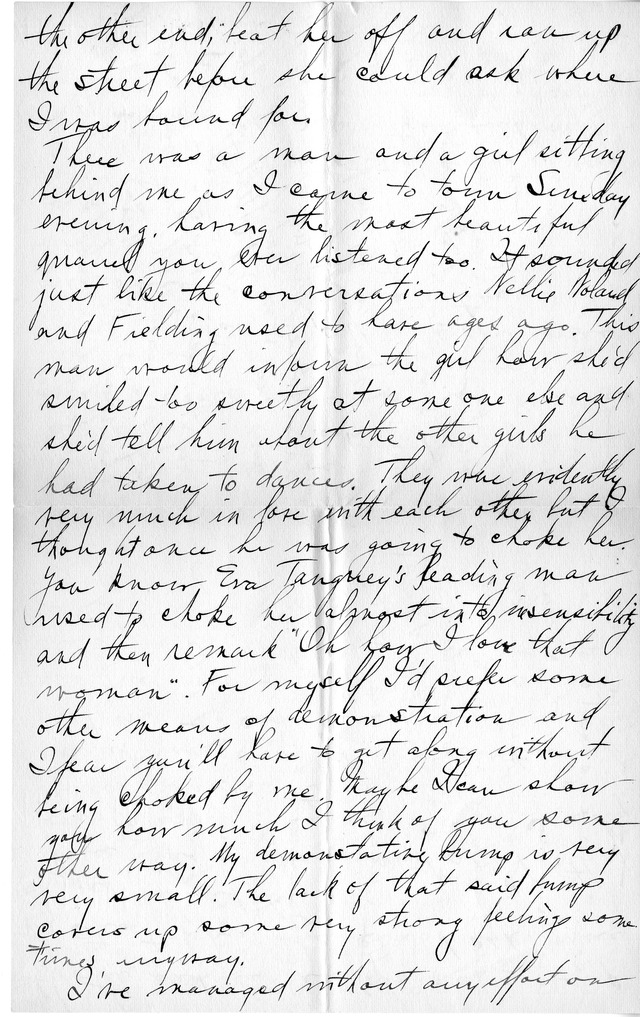 the other end, beat her off and ran up
the street before she could ask where
I was bound for.
There was a man and a girl sitting
behind me as I came to town Sunday
evening, having the most beautiful
quarrel you ever listened to. It sounded
just like the conversations Nellie Noland
and Fielding used to have ages ago. This
man would inform the girl how she'd
smiled too sweetly at some one else and
she'd tell him about the other girls he
had taken to dances. They were evidently
very much in love with each other but I
thought once he was going to choke her.
You know Eva Tanguey's leading man
used to choke her almost into insensibility
and then remark "Oh how I love that
woman". For myself I'd prefer some
other means of demonstration and
I fear you'll have to get along without
being choked by me. Maybe I can show
you how much I think of you some
other way. My demonstating bump is very
very small. The lack of that said bump
covers up some very strong feeling some
times anyway.
I've managed without any effort on